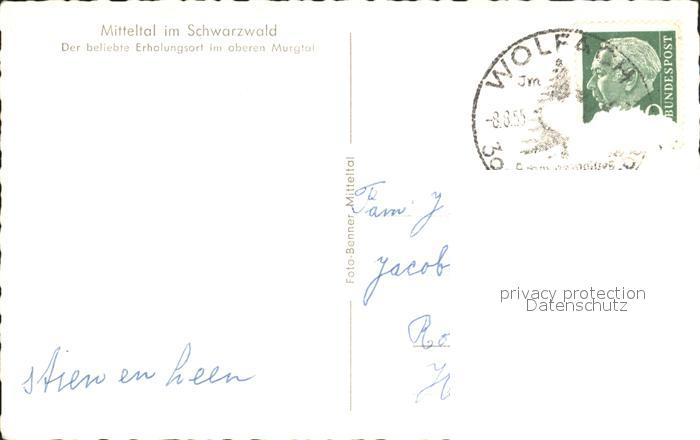 Mitteltal im Schwarzwald
Der beliebte Erholungsort im oberen Murgtal
WOLFACH
Im
-8.8.55
BUNDESPOST
Foto-Benner, Mitteltal
Fam. J
Jacob
Ro
H
privacy protection
Datenschutz
stien en heen